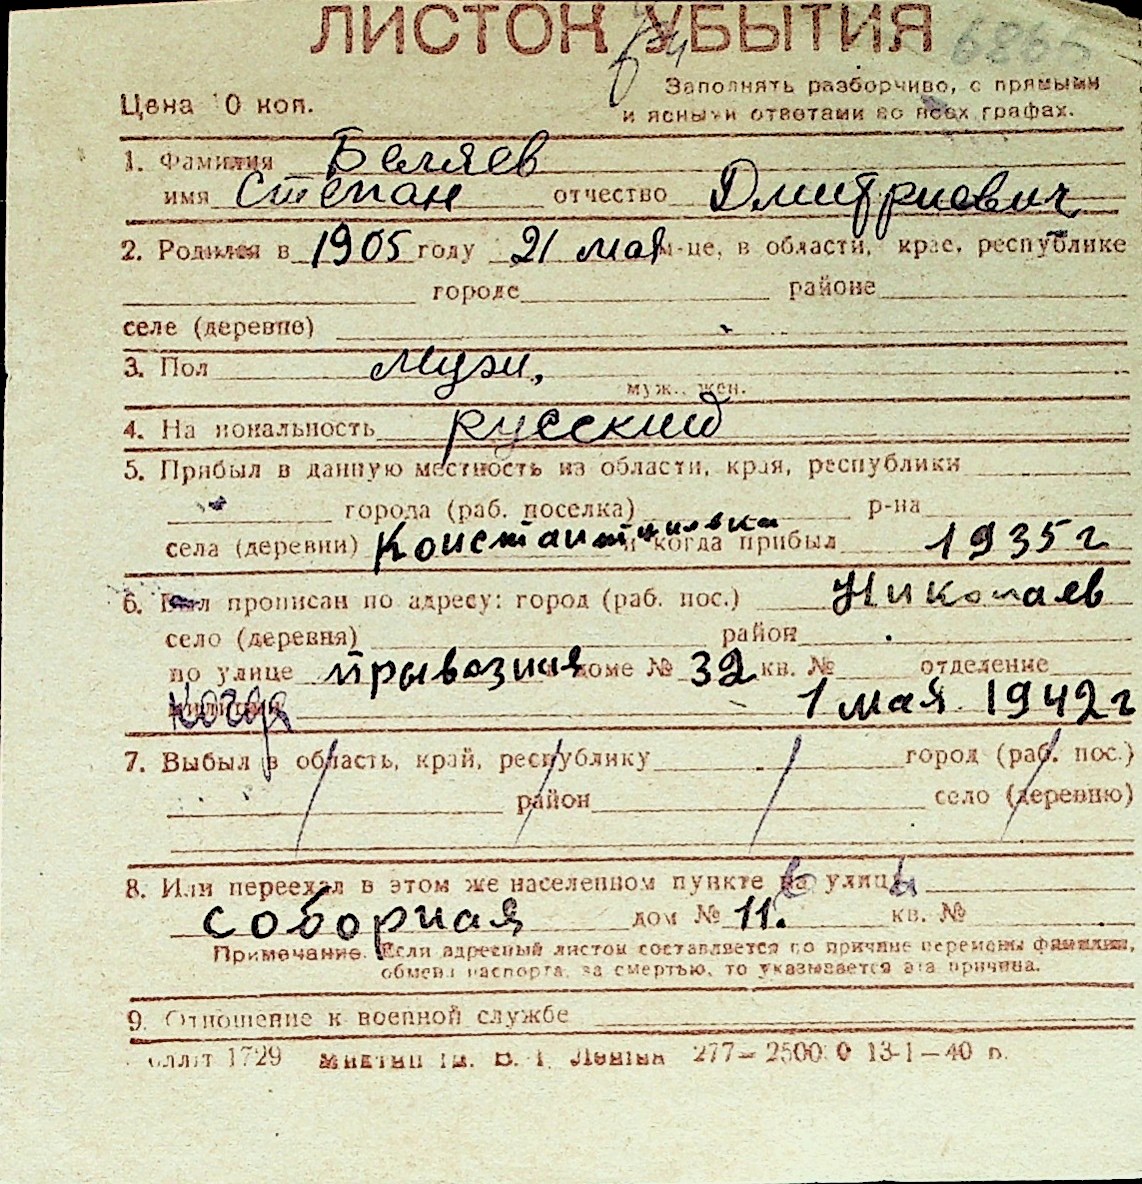 ЛИСТОК УБЫТИЯ
6865
Цена 10 коп.
Заполнять разборчиво, с прямыми
и ясными ответами во всех графах.
1. Фамилия Беляев
имя Степан отчество Дмитриевич
2. Родился в 1905 году 21 мая м-це, в области, крае, республике
городе районе
селе (деревне)
3. Пол мужи,
муж., жен.
4. Национальность русский
5. Прибыл в данную местность из области, края, республики
города (раб. поселка) р-на
села (деревни) Константиновка и когда прибыл 1935 г
6. Был прописан по адресу: город (раб. пос.) Николаев
село (деревня) район
по улице прывазная доме № 32 кв. № отделение
милиции когда 1 мая 1942 г
7. Выбыл в область, край, республику город (раб. пос.)
район село (деревню)
8. Или переехал в этом же населенном пункте в улицы
соборная дом № 11. кв. №
Примечание. Если адресный листок составляется по причине перемены фамилии,
обмена паспорта, за смертью, то указывается эта причина.
9. Отношение к военной службе
1729 277— 13-1—40 р.